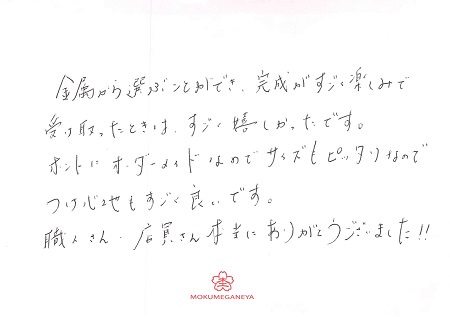 金属から選ぶことができ、完成がすごく楽しみで
受け取ったときは、すごく嬉しかったです。
ホントにオーダーメイドなのでサイズもピッタリなので
つけ心地もすごく良いです。
職人さん・店員さん本当にありがとうございました!!
MOKUMEGANEYA